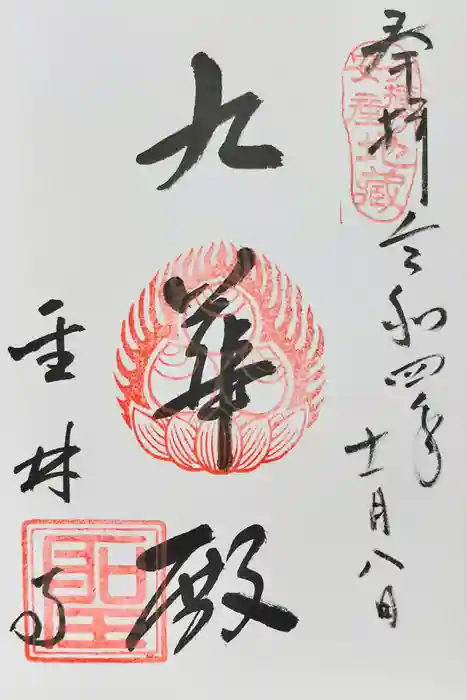 奉拝
令和四年
十一月八日
安産地蔵
九華殿
聖林寺
聖